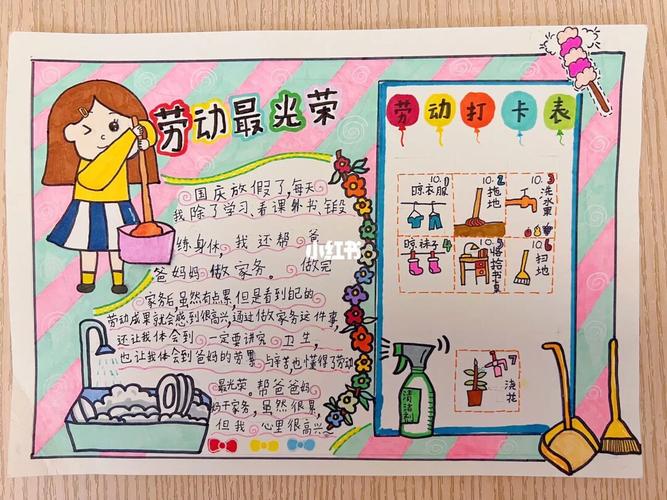 劳动最光荣
国庆放假了，每天
我除了学习、看课外书、锻
炼身体，我还帮爸
爸妈妈做家务。做完
家务后虽然有点累，但是看到自的
劳动成果就会感到很高兴，通过做家务这件事，
还让我体会到一定要讲究卫生，
也让我体会到爸妈的劳累与辛苦，也懂得了劳动
最光荣。帮爸爸妈
妈干家务，虽然很累，
但我心里很高兴～
小红书
劳动打卡表
10.1
晾衣服
10.2
拖地
10.3
洗水果
晾袜子
10.4
10.5
收拾书桌
10.6
扫地
7
浇花
清洁剂